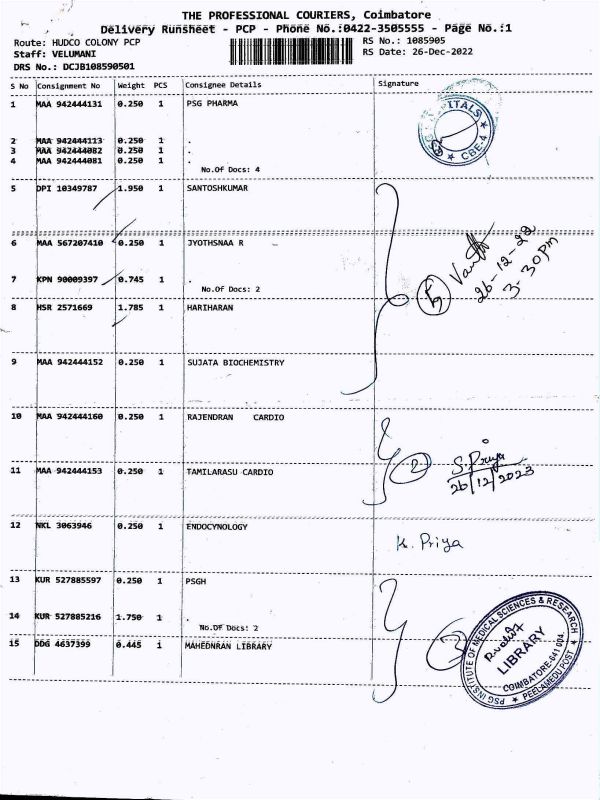 THE PROFESSIONAL COURIERS, Coimbatore
Delivery Runsheet - PCP - Phone No.:0422-3505555 - Page No.:1
Route: HUDCO COLONY PCP
RS No.: 1085905
Staff: VELUMANI
RS Date: 26-Dec-2022
DRS No.: DCJB108590501
S No Consignment No Weight PCS Consignee Details Signature
1 MAA 942444131 0.250 1 PSG PHARMA
ITALS
CBE-4
2 MAA 942444113 0.250 1 .
3 MAA 942444082 0.250 1 .
4 MAA 942444081 0.250 1 .
No.Of Docs: 4
5 DPI 10349787 1.950 1 SANTOSHKUMAR
6 MAA 567207410 0.250 1 JYOTHSNAA R
26-12-22
3-30pm
7 KPN 90009397 0.745 1 .
No.Of Docs: 2
8 HSR 2571669 1.785 1 HARIHARAN
9 MAA 942444152 0.250 1 SUJATA BIOCHEMISTRY
10 MAA 942444160 0.250 1 RAJENDRAN CARDIO
2
S. Priya
26/12/2023
11 MAA 942444153 0.250 1 TAMILARASU CARDIO
12 NKL 3063946 0.250 1 ENDOCYNOLOGY
K. Priya
13 KUR 527885597 0.250 1 PSGH
14 KUR 527885216 1.750 1 .
No.Of Docs: 2
15 DDG 4637399 0.445 1 MAHEDNRAN LIBRARY
3
PSG INSTITUTE OF MEDICAL SCIENCES & RESEARCH
LIBRARY
COIMBATORE-641 004.
PEELAMEDU POST